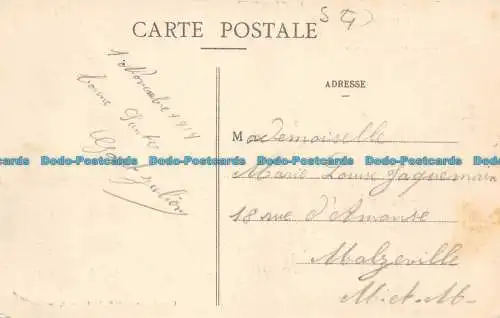 CARTE POSTALE
1 Novembre 1919
bonne Santé
ADRESSE
Mademoiselle
Dodo-Postcards Dodo-Postcards Dodo-Postcards Dodo-Postcards Dodo-Postcards
Marie Louise Jaquemin
18 rue d'Amance
Malzeville
M-et-M-